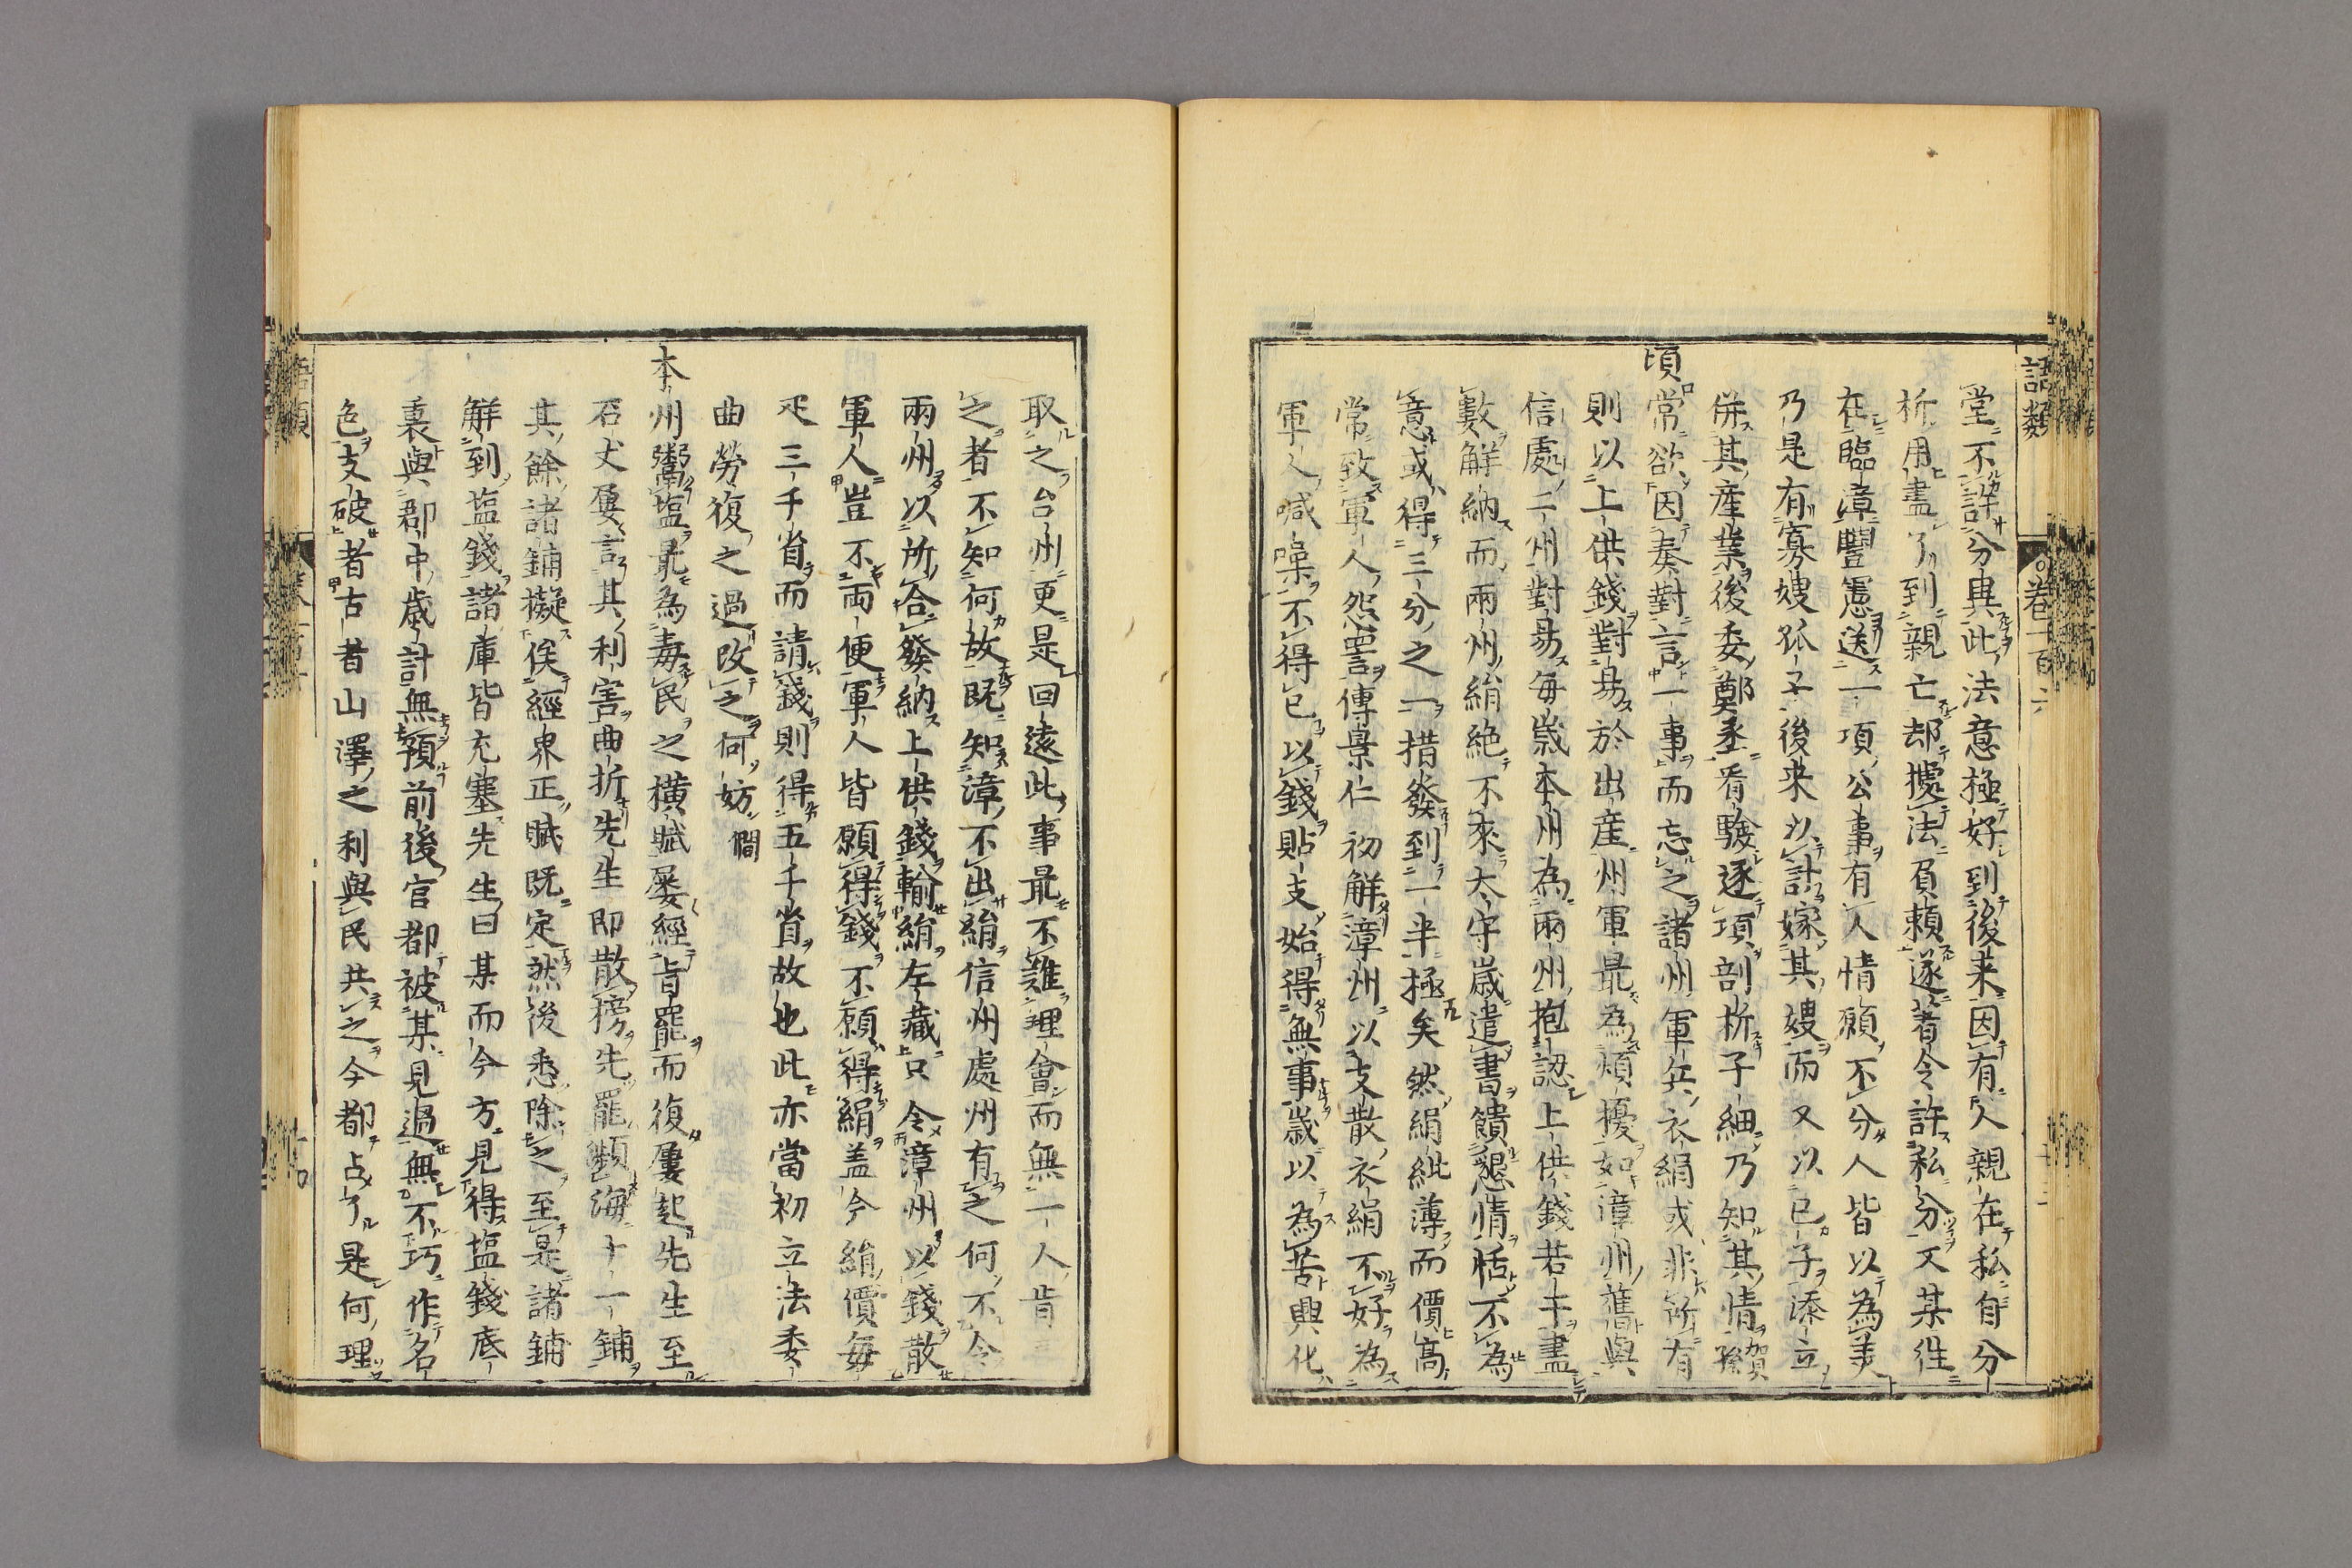 語類
卷一百六
堂不許分異此法意極好到後来因有人親在私自分
析用盡了到親亡却據法負頼遂著令許私分又某往
在臨漳豐憲送一項公事有人情願不分人皆以為美
乃是有寡嫂孤子後来以計嫁其嫂而又以已子添立
併其産業後委鄭丞看驗逐項剖析子細乃知其情賀孫
頃常欲因奏對言一事而忘之諸州軍兵衣絹或非所有
則以上供錢對易於出産州軍最為煩擾如漳州舊與
信處二州對易每嵗本州為兩州抱認上供錢若干盡
數解納而兩州絹絶不來太守嵗遣書饋懇情恬不為
意或得三分之一措發到一半極矣然絹紕薄而價高
常致軍人怨詈傅景仁初解漳州以支散衣絹不好為
軍人喊噪不得已以錢貼支始得無事嵗以為苦興化
取之台州更是回遠此事最不難理會而無一人肯
之者不知何故既知漳不出絹信州處州有之何不令
兩州以所合發納上供錢輸絹左藏只令漳州以錢散
軍人豈不兩便軍人皆願得錢不願得絹盖今絹價每
疋三千省而請錢則得五千省故也此亦當初立法委
曲勞復之過改之何妨 僩
本州鬻塩最為毒民之横賦屡經旨罷而復屢起先生至
石丈屢言其利害曲折先生即散榜先罷瀕海十一鋪
其餘諸鋪擬俟經界正賦既定然後悉除之至是諸鋪
解到塩錢諸庫皆充塞先生曰某而今方見得塩錢底
裏與郡中歳計無預前後官都被某見過無不巧作名
色支破者古者山澤之利與民共之今都占了是何理